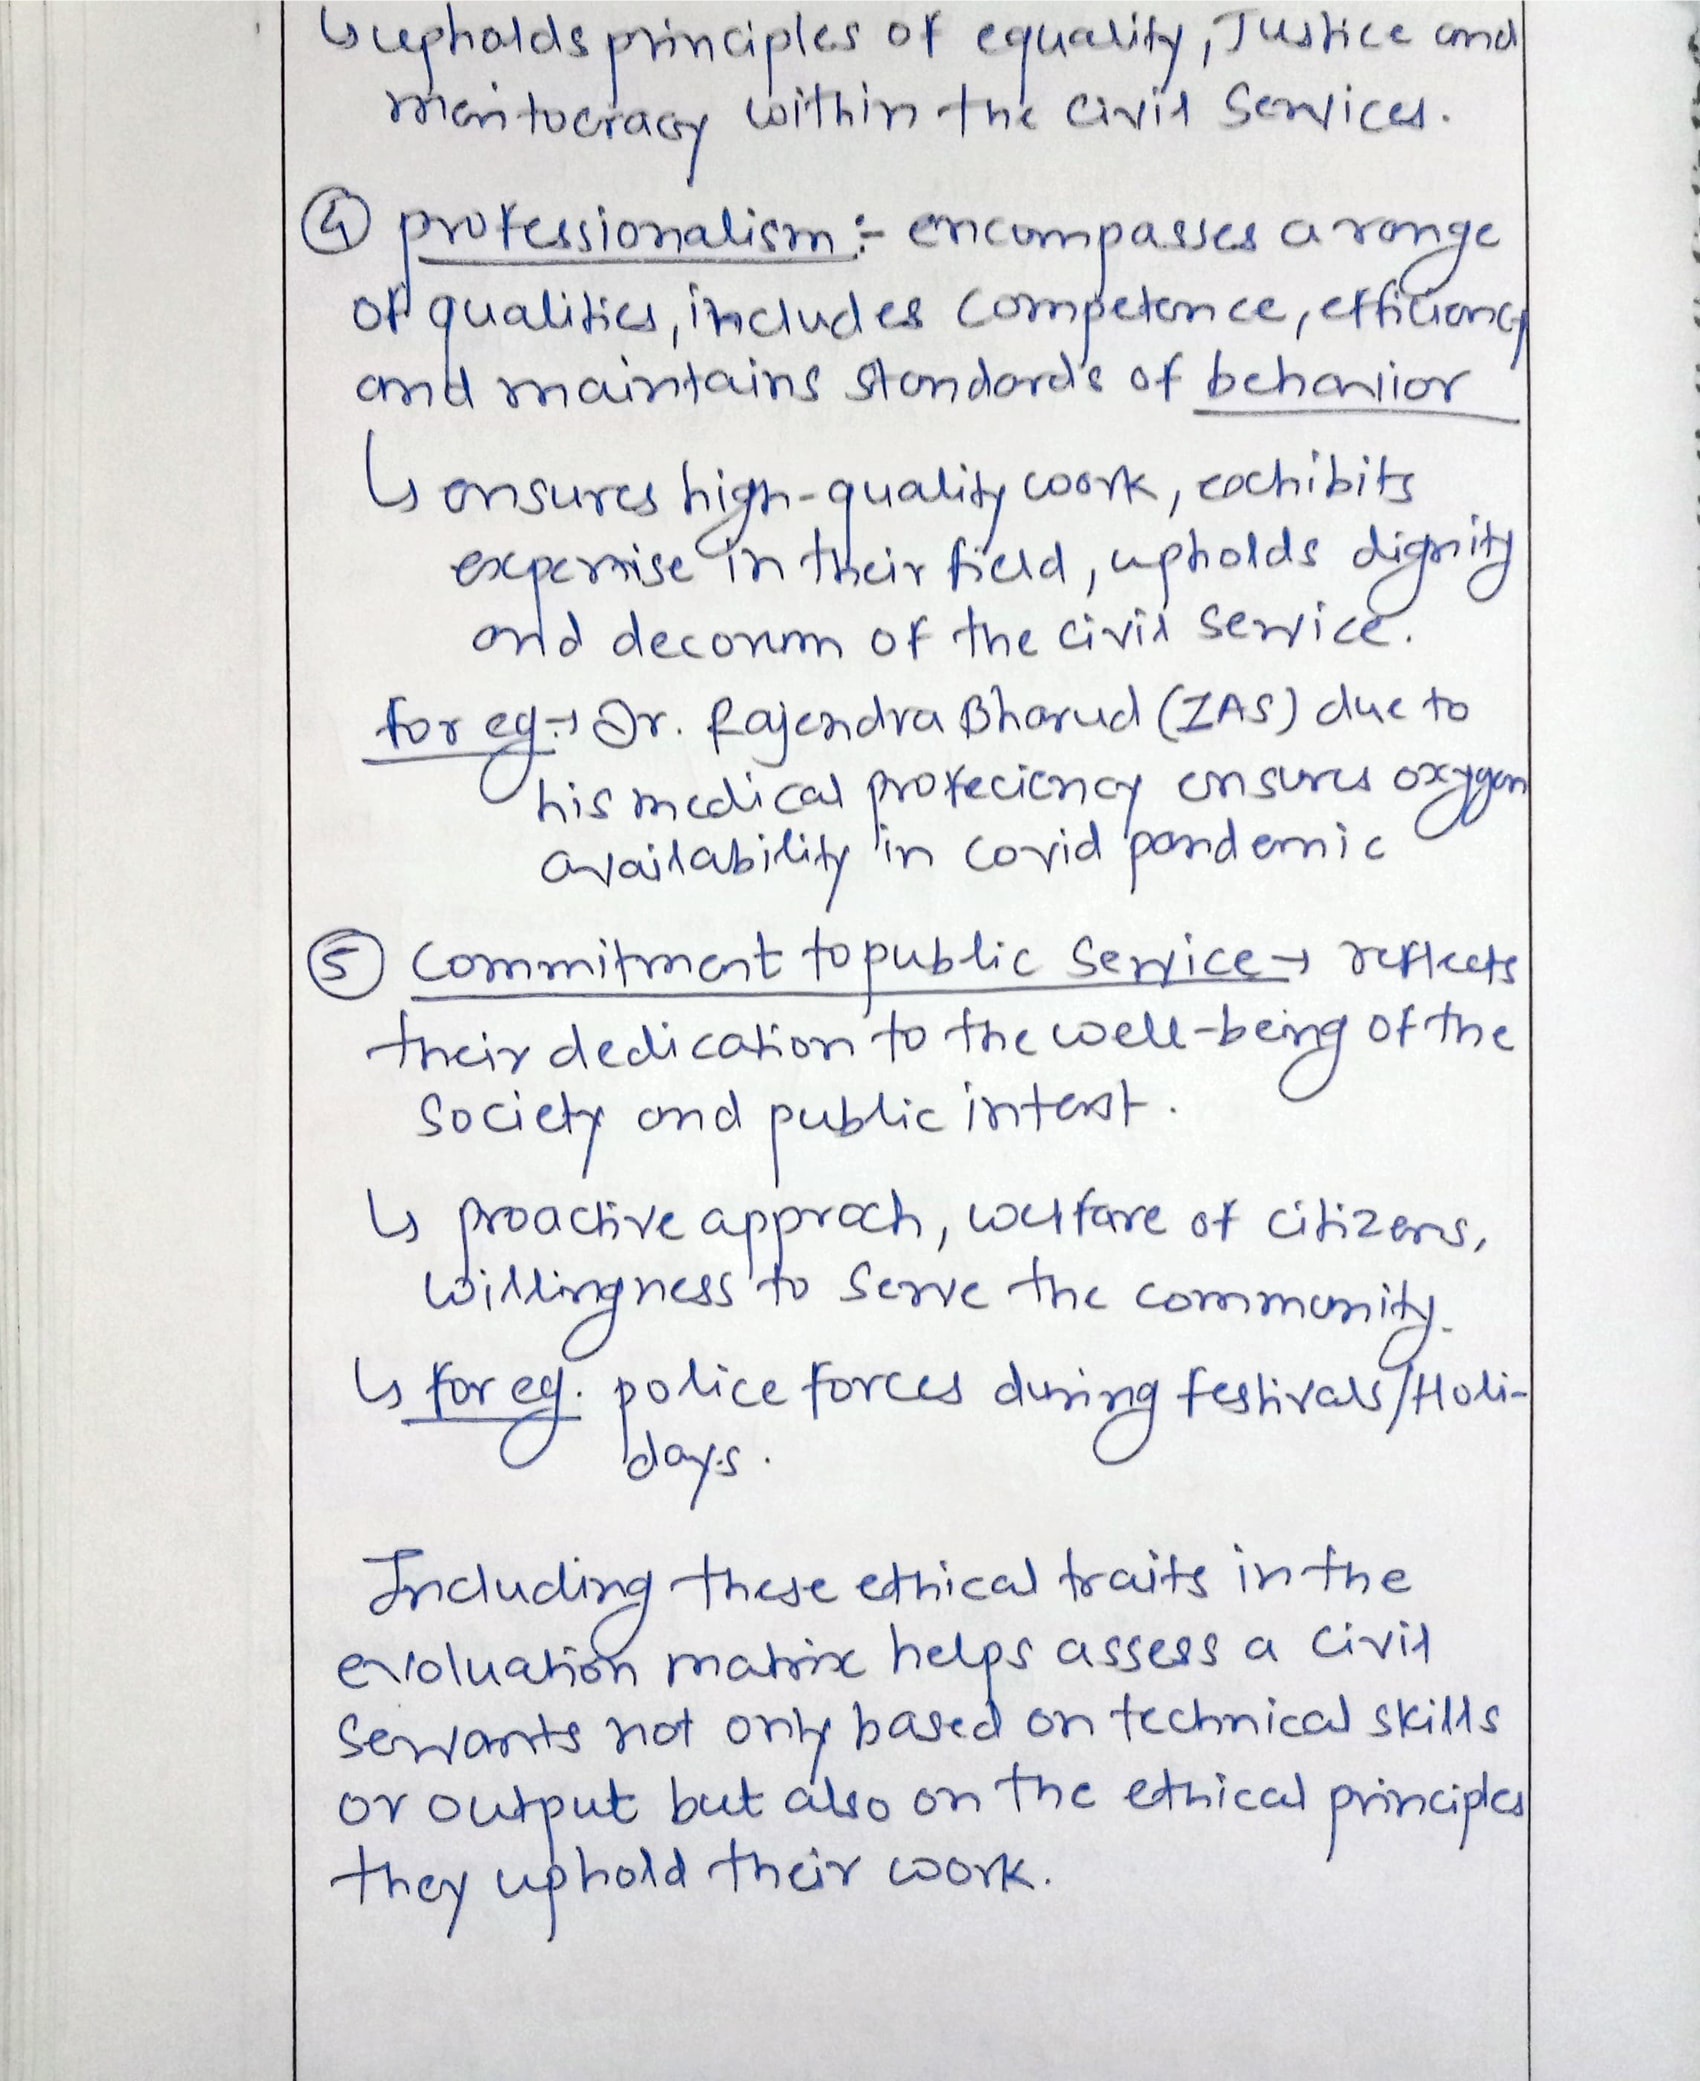 ↳ upholds principles of equality, Justice and
meritocracy within the civil services.
④ professionalism :- encompasses a range
of qualities, includes competence, efficiency
and maintains standards of behaviior
↳ ensures high-quality work, exhibits
expermise in their field, upholds dignity
and decorum of the civil service.
for eg → Dr. Rajendra Bharud (IAS) due to
his medical profeciency ensures oxygen
availability in covid pandemic
⑤ commitment to public service → reflects
their dedication to the well-being of the
society and public interst.
↳ proactive approch, welfare of citizens,
willingness to serve the community.
↳ for eg. police forces during festivals/Holi-
days.
Including these ethical traits in the
evoluation matrix helps assess a civil
servants not only based on technical skills
or output but also on the ethical principles
they uphold their work.